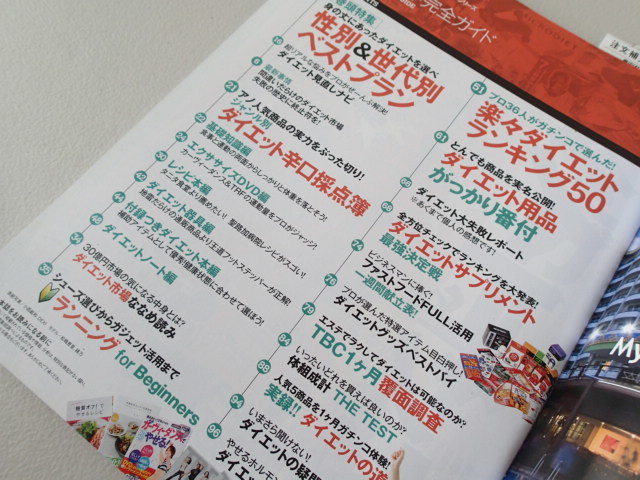 完全ガイド
巻頭特集
身の丈にあったダイエットを選べ
性別&世代別
ベストプラン
超リアルな悩みをプロがぜーんぶ解決!
ダイエット見直しナビ
最新事情
間違いだらけのダイエット市場
失敗の歴史に終止符を!
アノ人気商品の実力をぶった切り!
ジャンル別
ダイエット辛口採点簿
基礎知識編
食事と運動の両面からしっかりと体重を落とそう!
エクササイズDVD編
カーヴィーダンス&TRFの運動量をプロがジャッジ!
レシピ本編
タニタ食堂より薦めたい!
ダイエット器具編
地雷だらけの通販商品より王道フットステッパーが正解!
付録つきダイエット本編
補助アイテムとして優秀!健康状態に合わせて選ぼう!
ダイエットノート編
30億円市場の気になる中身とは?
ダイエット市場ななめ読み
シューズ選びからガジェット活用まで
ランニング for Beginners
61
プロ36人がガチンコで選んだ!
楽々ダイエット
ランキング50
とんでも商品を実名公開!
ダイエット用品
がっかり番付
ダイエット大失敗レポート
※あくまで個人の感想です!
全方位チェックでランキングを大発表!
ダイエットサプリメント
最強決定戦
76
ビジネスマンに捧ぐ!
ファストフードFULL活用
一週間献立表!
プロが選んだ特選アイテム目白押し!
ダイエットグッズベストバイ
エステでラクしてダイエットは可能なのか?
TBC1ヶ月 覆面調査
88
いったいどれを買えば良いのか?
体組成計 THE TEST
人気5商品を1ヶ月ガチンコ体験!
実録!! ダイエットの道
94
いまさら聞けない!
ダイエットの疑問
96
やせるホルモン
My